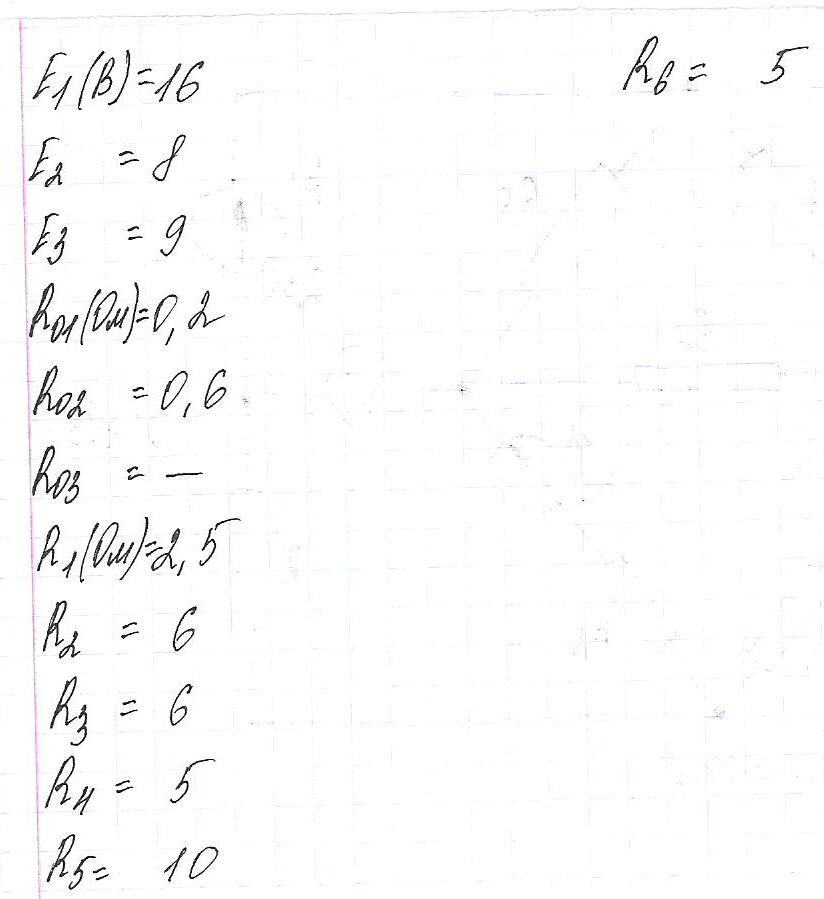 E1(В)=16
E2 = 8
E3 = 9
R01(Ом)=0,2
R02 = 0,6
R03 = —
R1(Ом)=2,5
R2 = 6
R3 = 6
R4 = 5
R5= 10
R6= 5